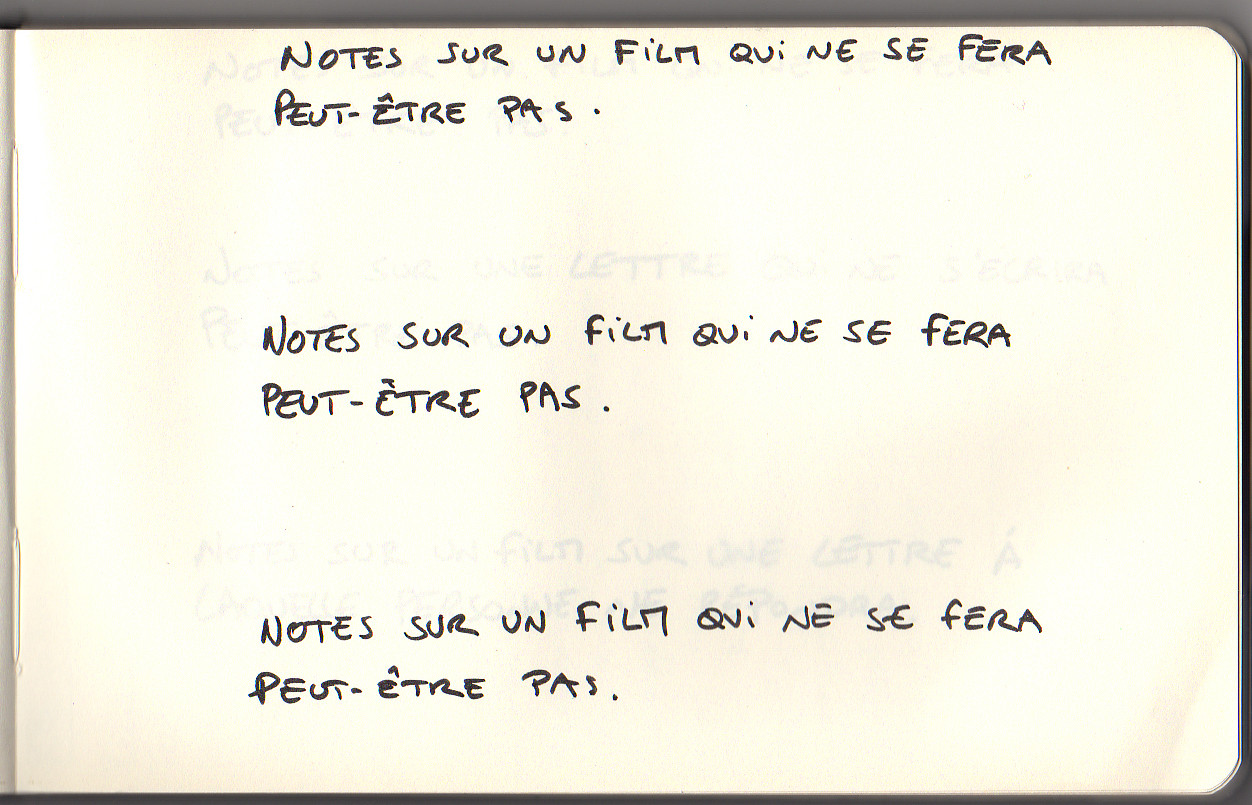 NOTES SUR UN FILM QUI NE SE FERA
PEUT-ÊTRE PAS.
NOTES SUR UNE LETTRE QUI NE S'ECRIRA
NOTES SUR UN FILM QUI NE SE FERA
PEUT-ÊTRE PAS.
NOTES SUR UN FILM SUR UNE LETTRE À
LAQUELLE PERSONNE NE RÉPONDRA
NOTES SUR UN FILM QUI NE SE FERA
PEUT-ÊTRE PAS.